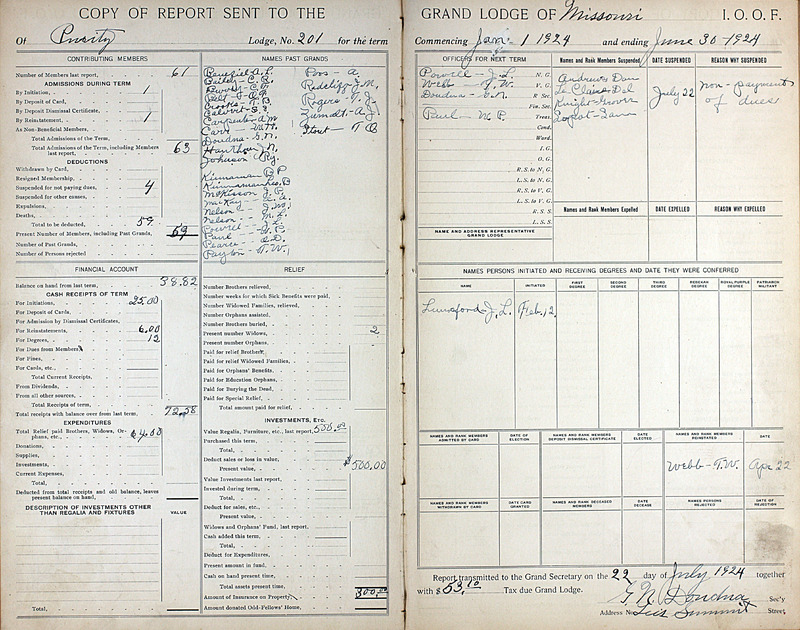 COPY OF REPORT SENT TO THE
Of Puxity Lodge, No. 201 for the term
CONTRIBUTING MEMBERS
Number of Members last report, 61
ADMISSIONS DURING TERM
By Initiation, 1
By Deposit of Card,
By Deposit Dismissal Certificate,
By Reinstatement, 1
As Non-Beneficial Members,
Total Admissions of the Term,
Total Admissions of the Term, including Members last report, 63
DEDUCTIONS
Withdrawn by Card,
Resigned Membership,
Suspended for not paying dues, 4
Suspended for other causes,
Expulsions,
Deaths,
Total to be deducted, 59
Present Number of Members, including Past Grands,
Number of Past Grands,
Number of Persons rejected
NAMES PAST GRANDS
Bailey C. C.
Crooks T. B.
Calvert S. J.
Carpenter A M
Doudna G. N.
Hawthorn J. N.
Johnson Ry.
Kinnaman B P
Kinnaman Geo. B
McKisson J. P.
MacKay
Nelson J. M.
Nelson N. L.
Powell J. L.
Paul W. P.
Pearce
Payton T. W.
Pos A.
Radcliff J. M.
Rogers T. J.
Zumalt A. J
Stout T B
FINANCIAL ACCOUNT
Balance on hand from last term, 38.82
CASH RECEIPTS OF TERM
For Initiations, 25.00
For Deposit of Cards,
For Admission by Dismissal Certificates,
For Reinstatements, 6.00
For Degrees, 12
For Dues from Members
For Fines,
For Cards, etc.,
Total Current Receipts,
From Dividends,
From all other sources,
Total Receipts of term,
Total receipts with balance over from last term,
EXPENDITURES
Total Relief paid Brothers, Widows, Orphans, etc., $4.00
Donations,
Supplies,
Investments,
Current Expenses,
Total,
Deducted from total receipts and old balance, leaves present balance on hand,
DESCRIPTION OF INVESTMENTS OTHER THAN REGALIA AND FIXTURES
VALUE
Total,
RELIEF
Number Brothers relieved,
Number weeks for which Sick Benefits were paid,
Number Widowed Families, relieved,
Number Orphans assisted,
Number Brothers buried,
Present number Widows, 2
Present number Orphans,
Paid for relief Brothers,
Paid for relief Widowed Families,
Paid for Orphans' Benefits,
Paid for Education Orphans,
Paid for Burying the Dead,
Paid for Special Relief,
Total amount paid for relief,
INVESTMENTS, Etc.
Value Regalia, Furniture, etc., last report, 500.00
Purchased this term,
Total,
Deduct sales or loss in value,
Present value, $500.00
Value Investments last report,
Invested during term,
Total,
Deduct for sales, etc.,
Present value,
Widows and Orphans' Fund, last report,
Cash added this term,
Total,
Deduct for Expenditures,
Present amount in fund,
Cash on hand present time,
Total assets present time,
Amount of Insurance on Property, 300.00
Amount donated Odd-Fellows' Home,
GRAND LODGE OF Missouri I. O. O. F.
Commencing Jan. 1 1924 and ending June 30 - 1924
OFFICERS FOR NEXT TERM
Powell - J. L. N. G.
Webb - T. W. V. G.
Doudna - G. N. R. Sec.
Fin. Sec.
Paul - W P. Treas.
Cond.
Ward.
I. G.
O. G.
R. S. to N. G.
L. S. to N. G.
R. S. to V. G.
L. S. to V. G.
R. S. S.
L. S. S.
NAME AND ADDRESS REPRESENTATIVE GRAND LODGE
Names and Rank Members Suspended
Andrews Dan
Le Claire Del
DATE SUSPENDED
July 22
REASON WHY SUSPENDED
non-payment of dues
Names and Rank Members Expelled
DATE EXPELLED
REASON WHY EXPELLED
NAMES PERSONS INITIATED AND RECEIVING DEGREES AND DATE THEY WERE CONFERRED
NAME
INITIATED
FIRST DEGREE
SECOND DEGREE
THIRD DEGREE
REBEKAH DEGREE
ROYAL PURPLE DEGREE
PATRIARCH MILITANT
Lunsford - J. L. Feb. 12
NAMES AND RANK MEMBERS ADMITTED BY CARD
DATE OF ELECTION
NAMES AND RANK MEMBERS DEPOSIT DISMISSAL CERTIFICATE
DATE ELECTED
NAMES AND RANK MEMBERS REINSTATED
DATE
Webb - T. W. Apr 22
NAMES AND RANK MEMBERS WITHDRAWN BY CARD
DATE CARD GRANTED
NAMES AND RANK DECEASED MEMBERS
DATE DECEASE
NAMES PERSONS REJECTED
DATE OF REJECTION
Report transmitted to the Grand Secretary on the 22 day of July 1924 together
with $53.10 Tax due Grand Lodge.
G N Doudna Sec'y
Address No. Lees Summit Street,